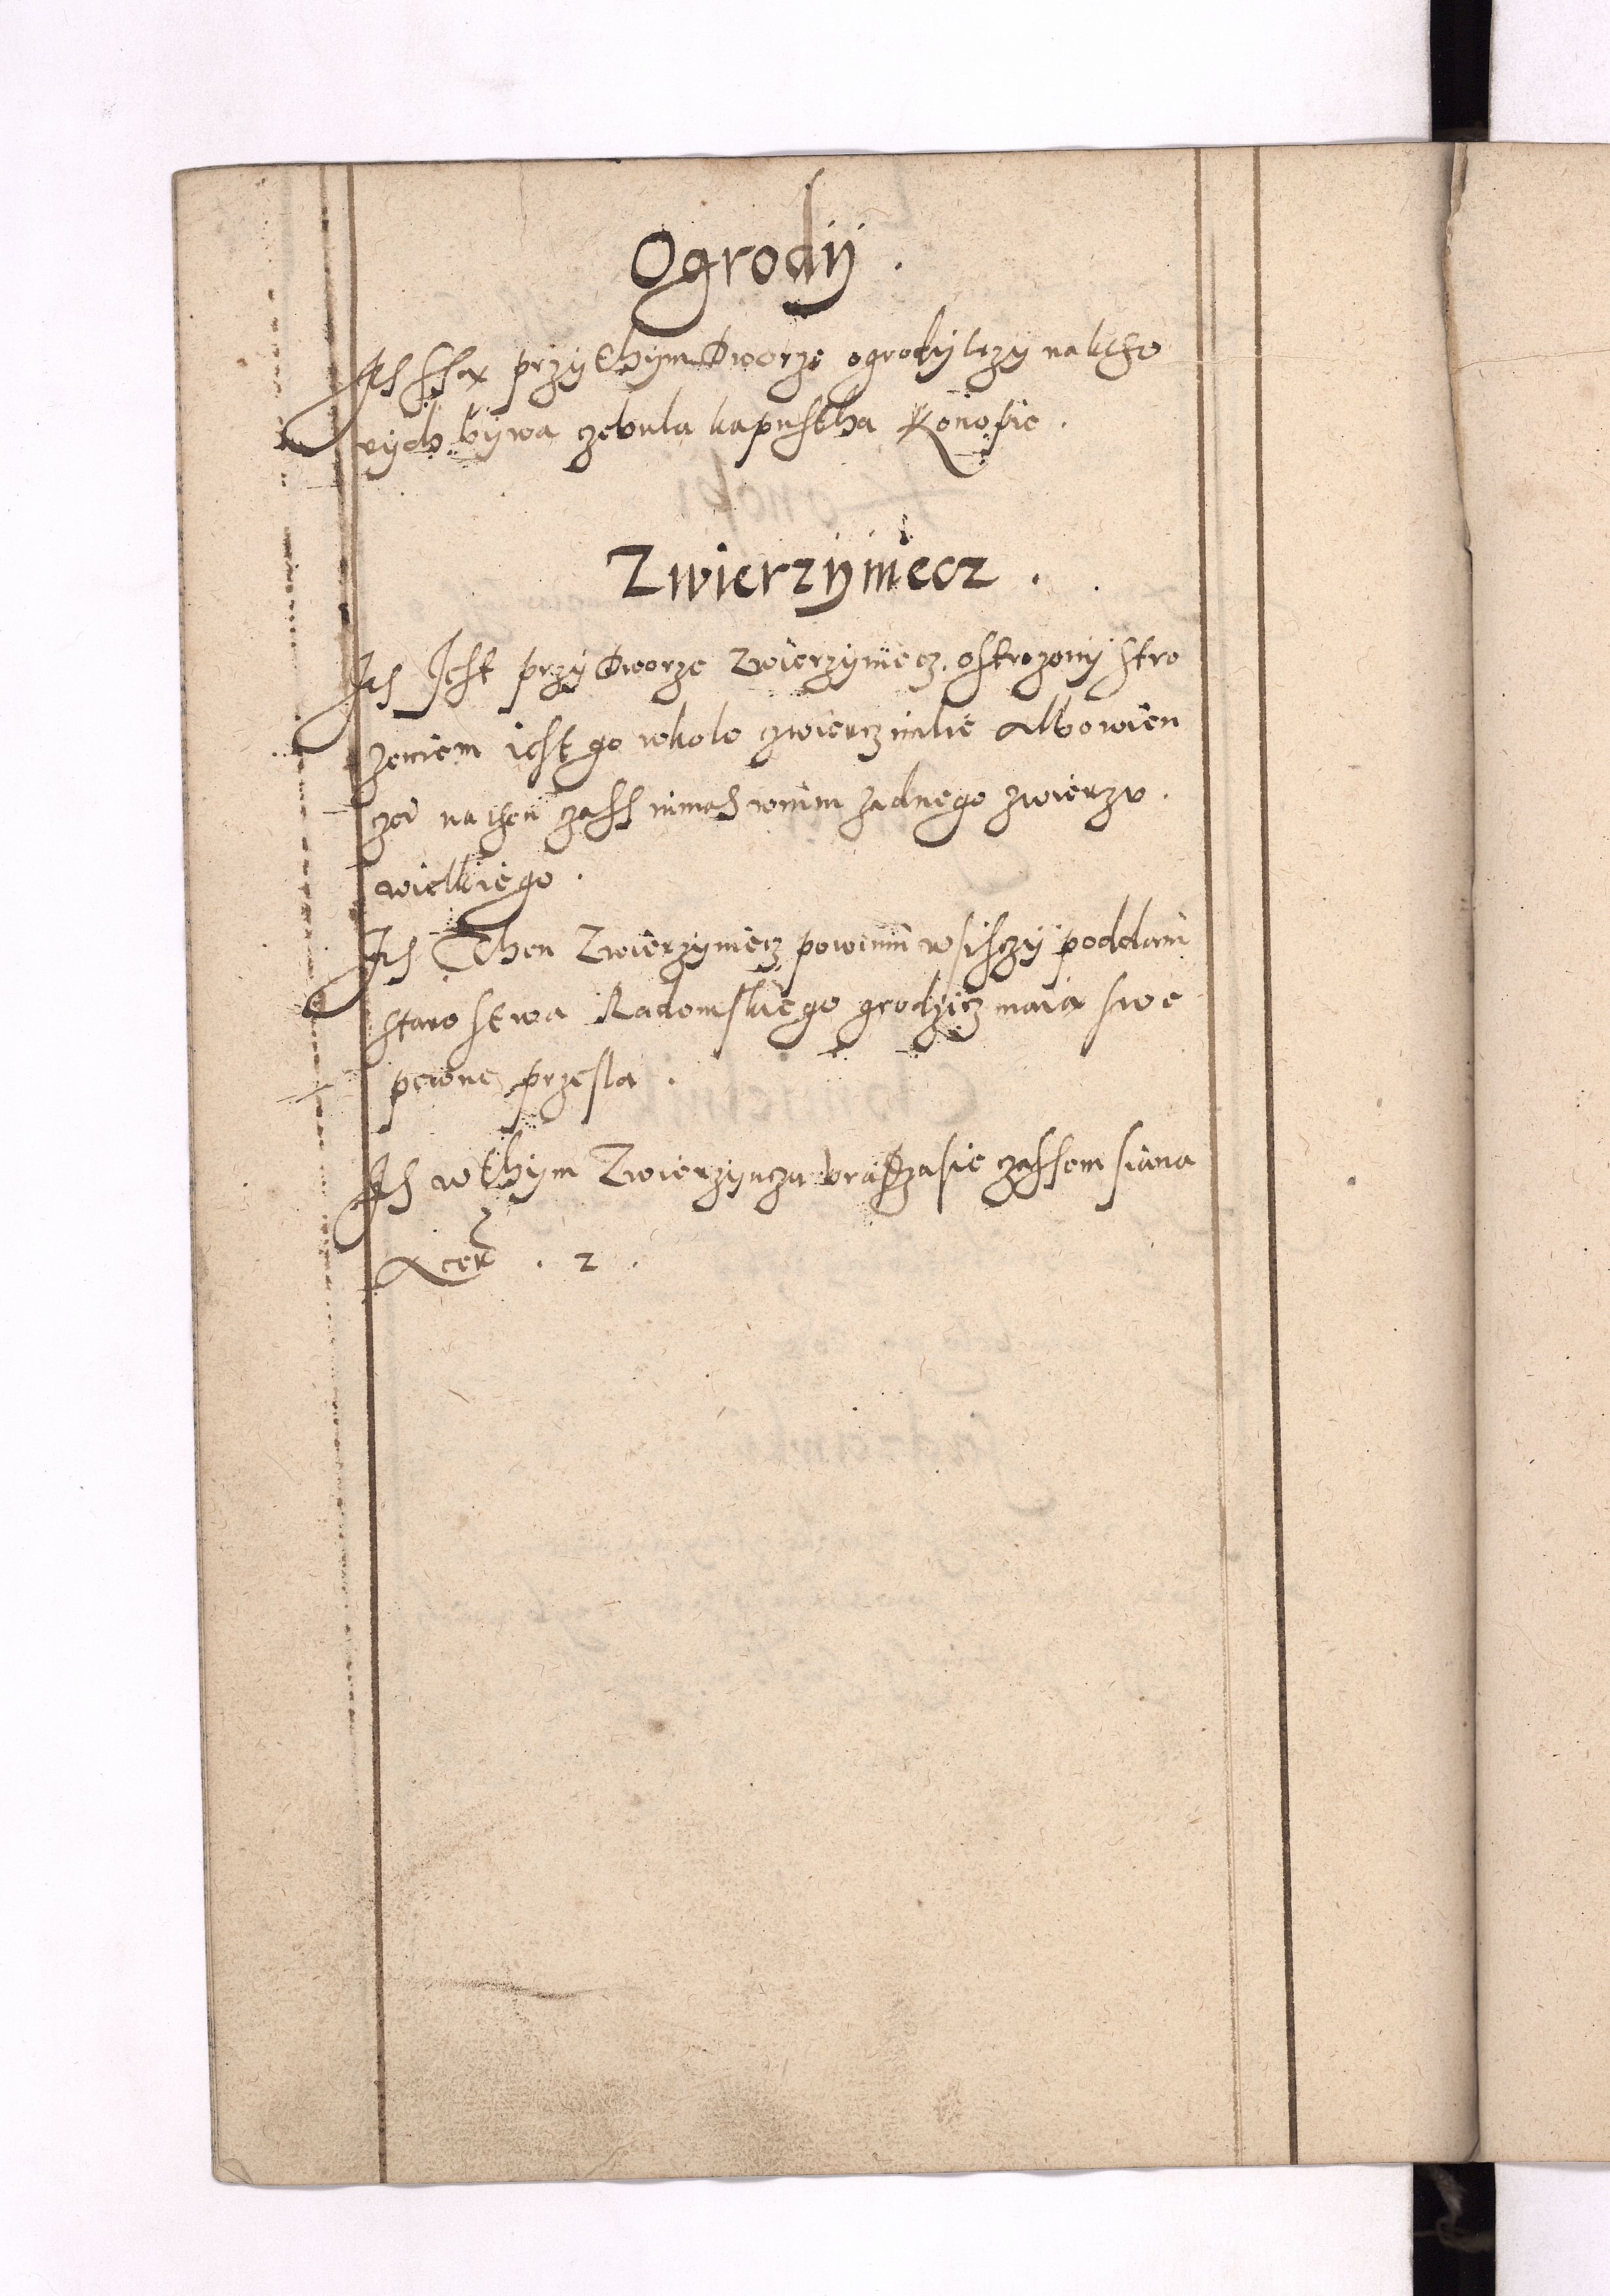 Ogrody .
Its ssą przy thym dworze ogrody trzy na ktho
rych bywa czebula kapustha Konopie .
Zwierzyniecz .
Its Jest przy dworze zwierzyniecz ostrożony stro
żeniem iest go wkoło czwiercz milie Albowiem
na then czass nimasz wnim żadnego zwierzu
wielkiego .
Its Then Zwierzyniecz powinni wsisczy poddani
starostwa Radomskiego grodzicz maią swe
pewne przesła .
Its w thym Zwierzynczu vradza sie czassem siana
Acer . 2 .